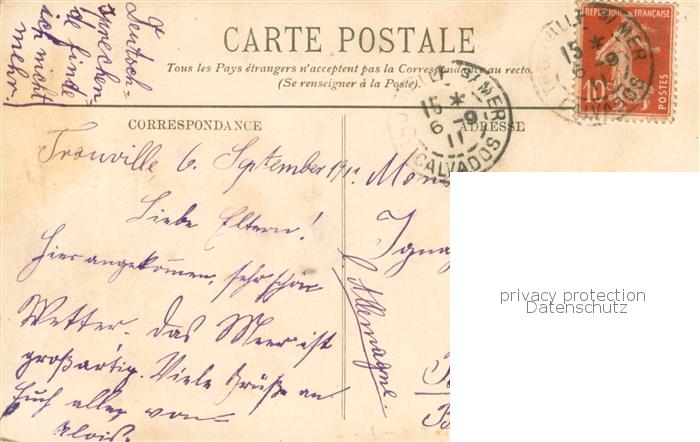 CARTE POSTALE
Tous les Pays étrangers n'acceptent pas la Correspondance au recto.
(Se renseigner à la Poste).
CORRESPONDANCE
ADRESSE
Deutsch-
sprechen-
de finde
ich nicht
mehr.
Trouville, 6. September 1911
Liebe Eltern!
Hier angekommen, sehr schön
Wetter. das Meer ist
großartig. Viele Grüße an
Euch alle von
Alois.
Allemagne
RÉPUBLIQUE FRANÇAISE
10
POSTES
MER
15 *
6 - 9
11
CALVADOS
MER
15 *
6 - 9
11
CALVADOS
privacy protection
Datenschutz